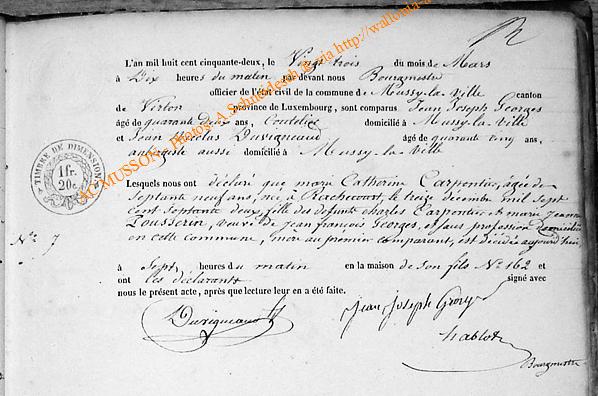 L'an mil huit cent cinquante-deux, le Vingt trois du mois de Mars
à Dix heures du matin par devant nous Bourgmestre
officier de l'état civil de la commune de Mussy-la-Ville canton
de Virton province de Luxembourg, sont comparus Jean Joseph Georges
âgé de quarante deux ans, domicilié à Mussy-la-Ville
et Jean Nicolas Duvigneaud âgé de quarante cinq ans,
aubergiste aussi domicilié à Mussy-la-Ville
Lesquels nous ont déclaré que marie Catherine Carpentier, âgée de
Septante neuf ans, née à Rachecourt, le treize décembre mil sept
Cent Septante deux, fille des défunts charles Carpentier et marie jeanne
Tousserin, veuve de jean françois Georges, et sans profession domiciliée
en cette commune, mère au premier comparant, est décédée aujourd'hui
à Sept heures du matin en la maison de son fils No 162 et
ont les déclarants signé avec
nous le présent acte, après que lecture leur en a été faite.
No 7
TIMBRE DE DIMENSION
1 fr.
20 c.
Duvigneaud
Jean Joseph Georges
Bourgmestre
AC MUSSON - Photos : A. http://wallonia